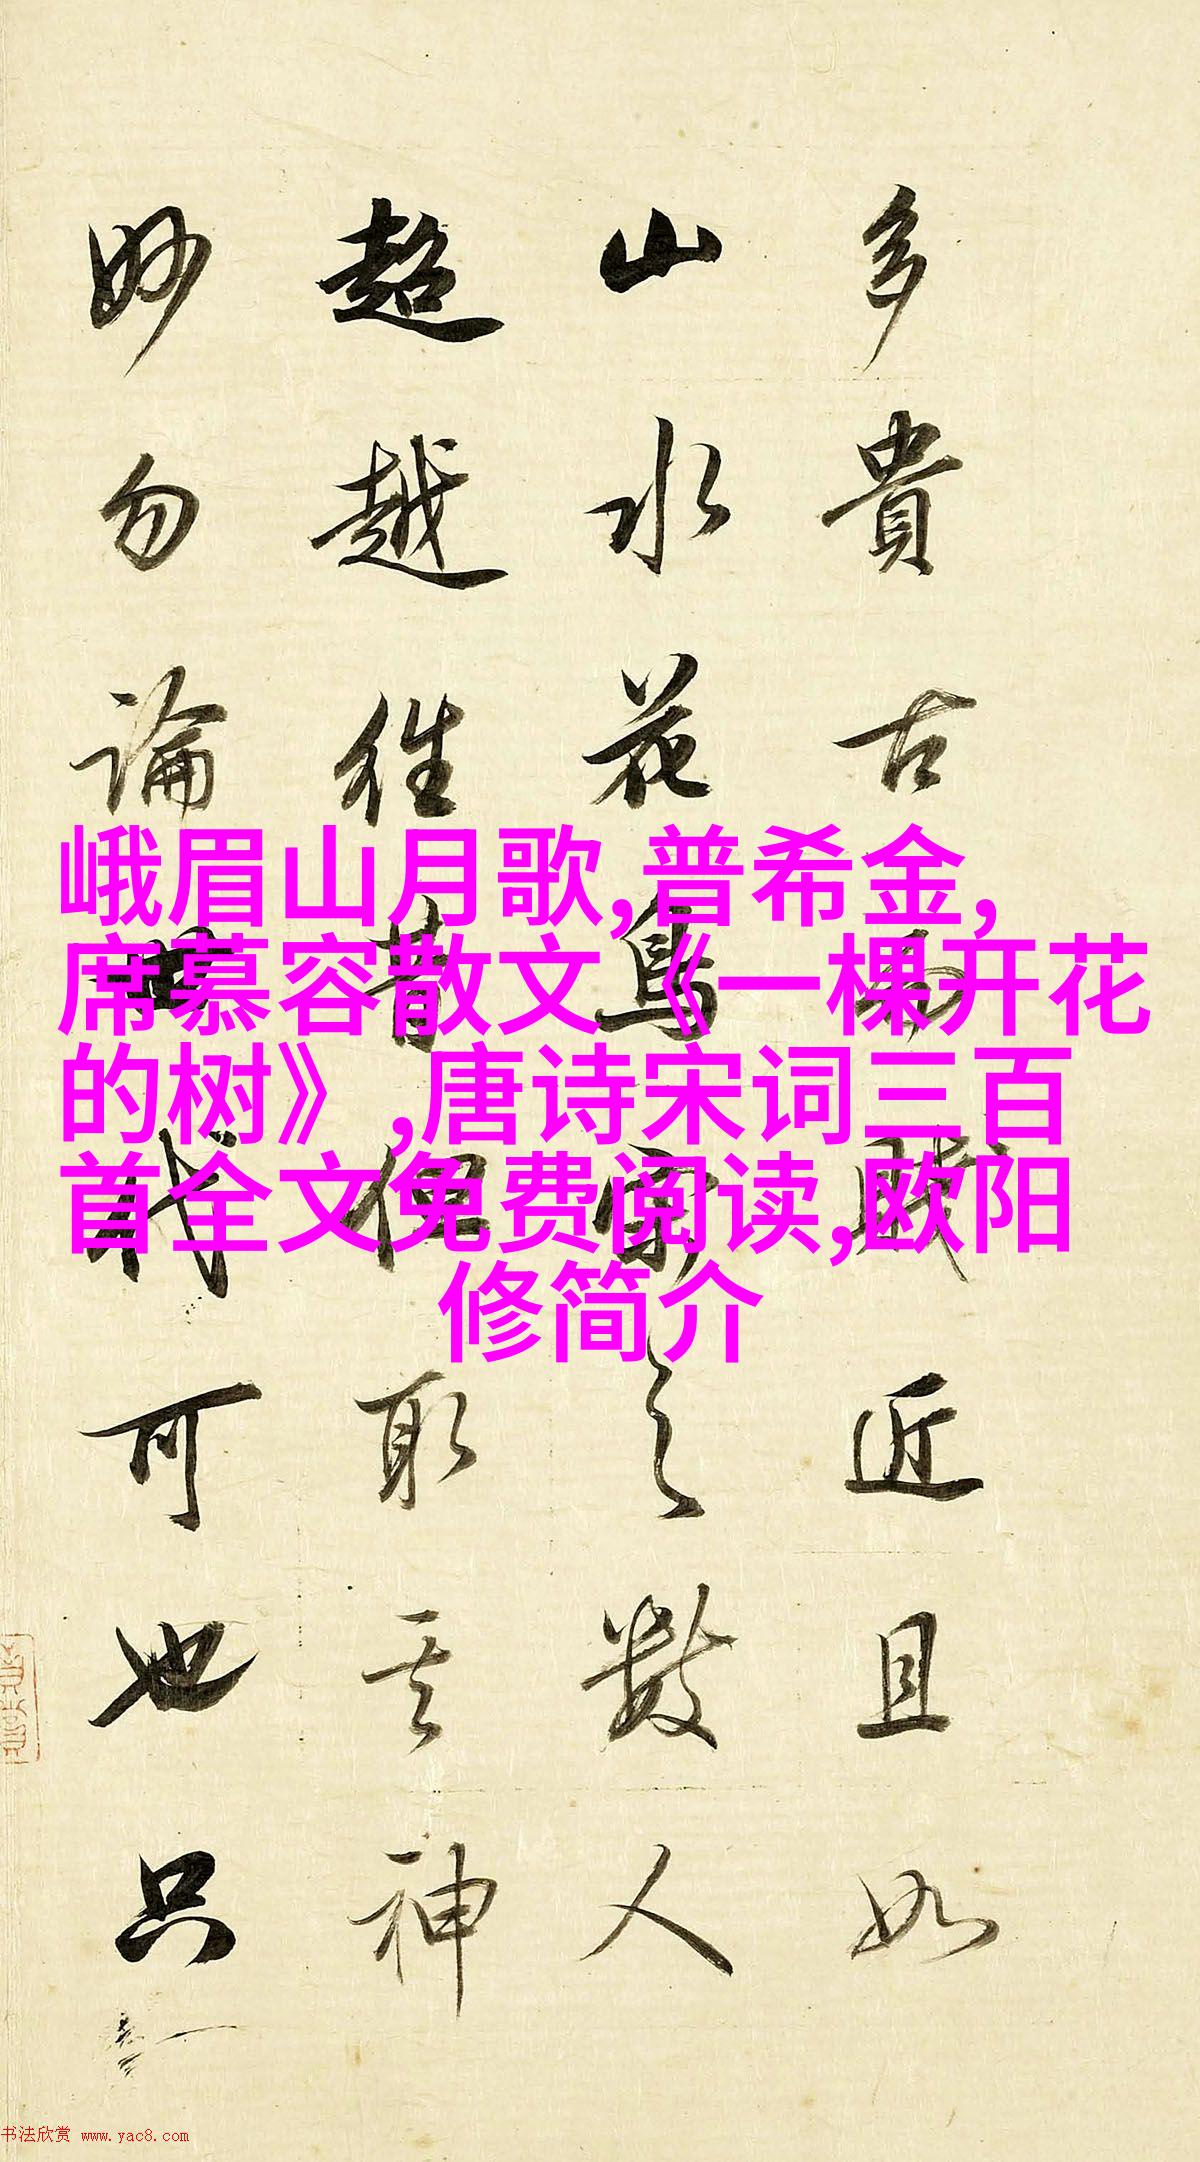 多貴古而賤近且如
山水花鳥之數人
超越往昔但取其神
妙勿論世代可也只
峨眉山月歌,普希金,
席慕容散文《一棵开花
的树》,唐诗宋词三百
首全文免费阅读,欧阳
修简介
书法欣赏 www.yac8.com